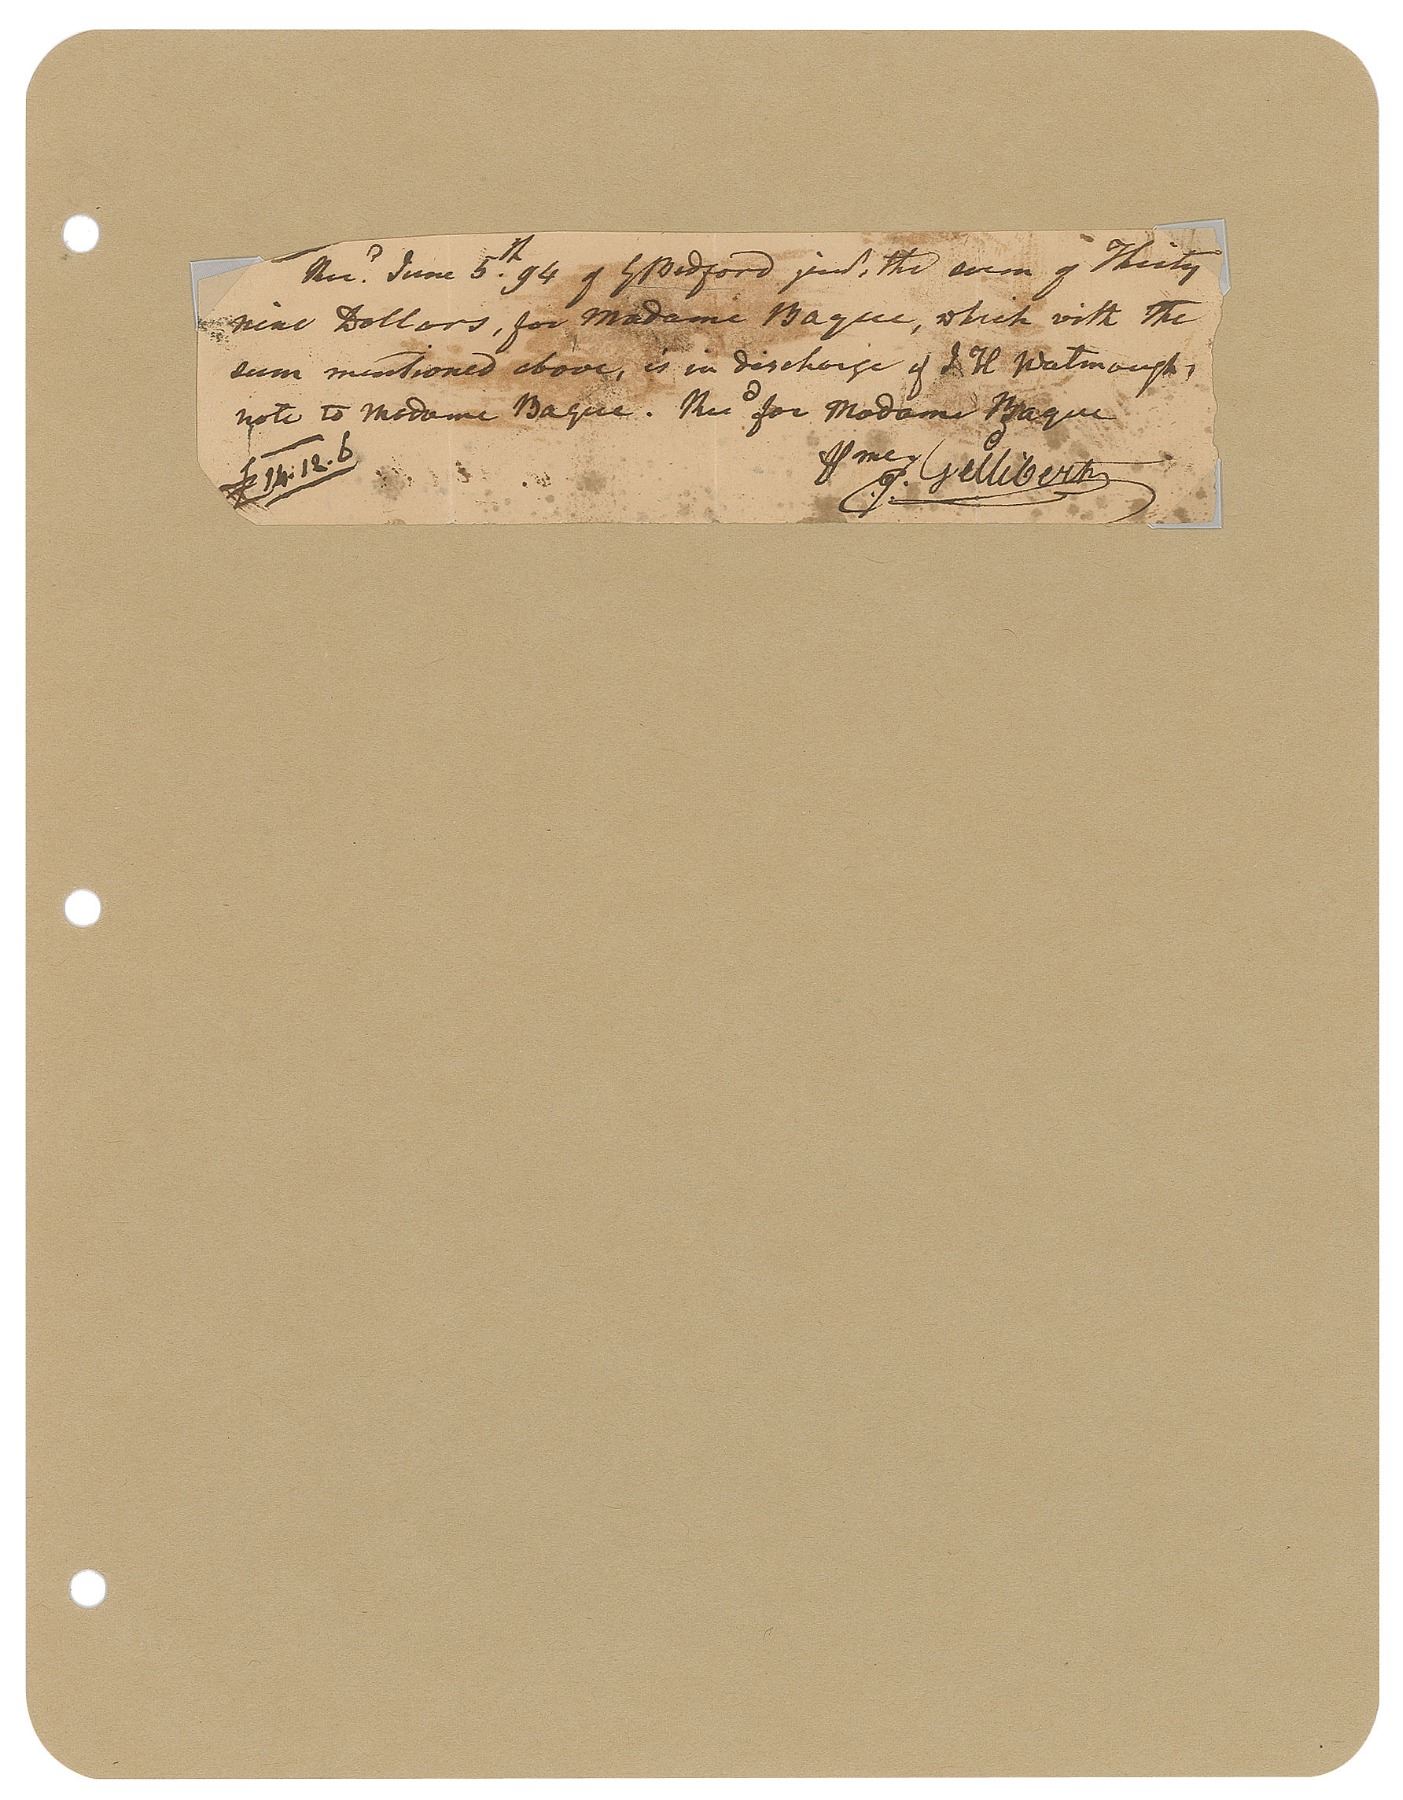 Rec.d June 5.th 94 of G Bedford jun.r, the sum of Thirty
nine Dollars, for Madame Baque, which with the
sum mentioned above, is in discharge of J H Watmough,
note to Madame Baque. Rec.d for Madame Baque
£14.12.6
Gellibert